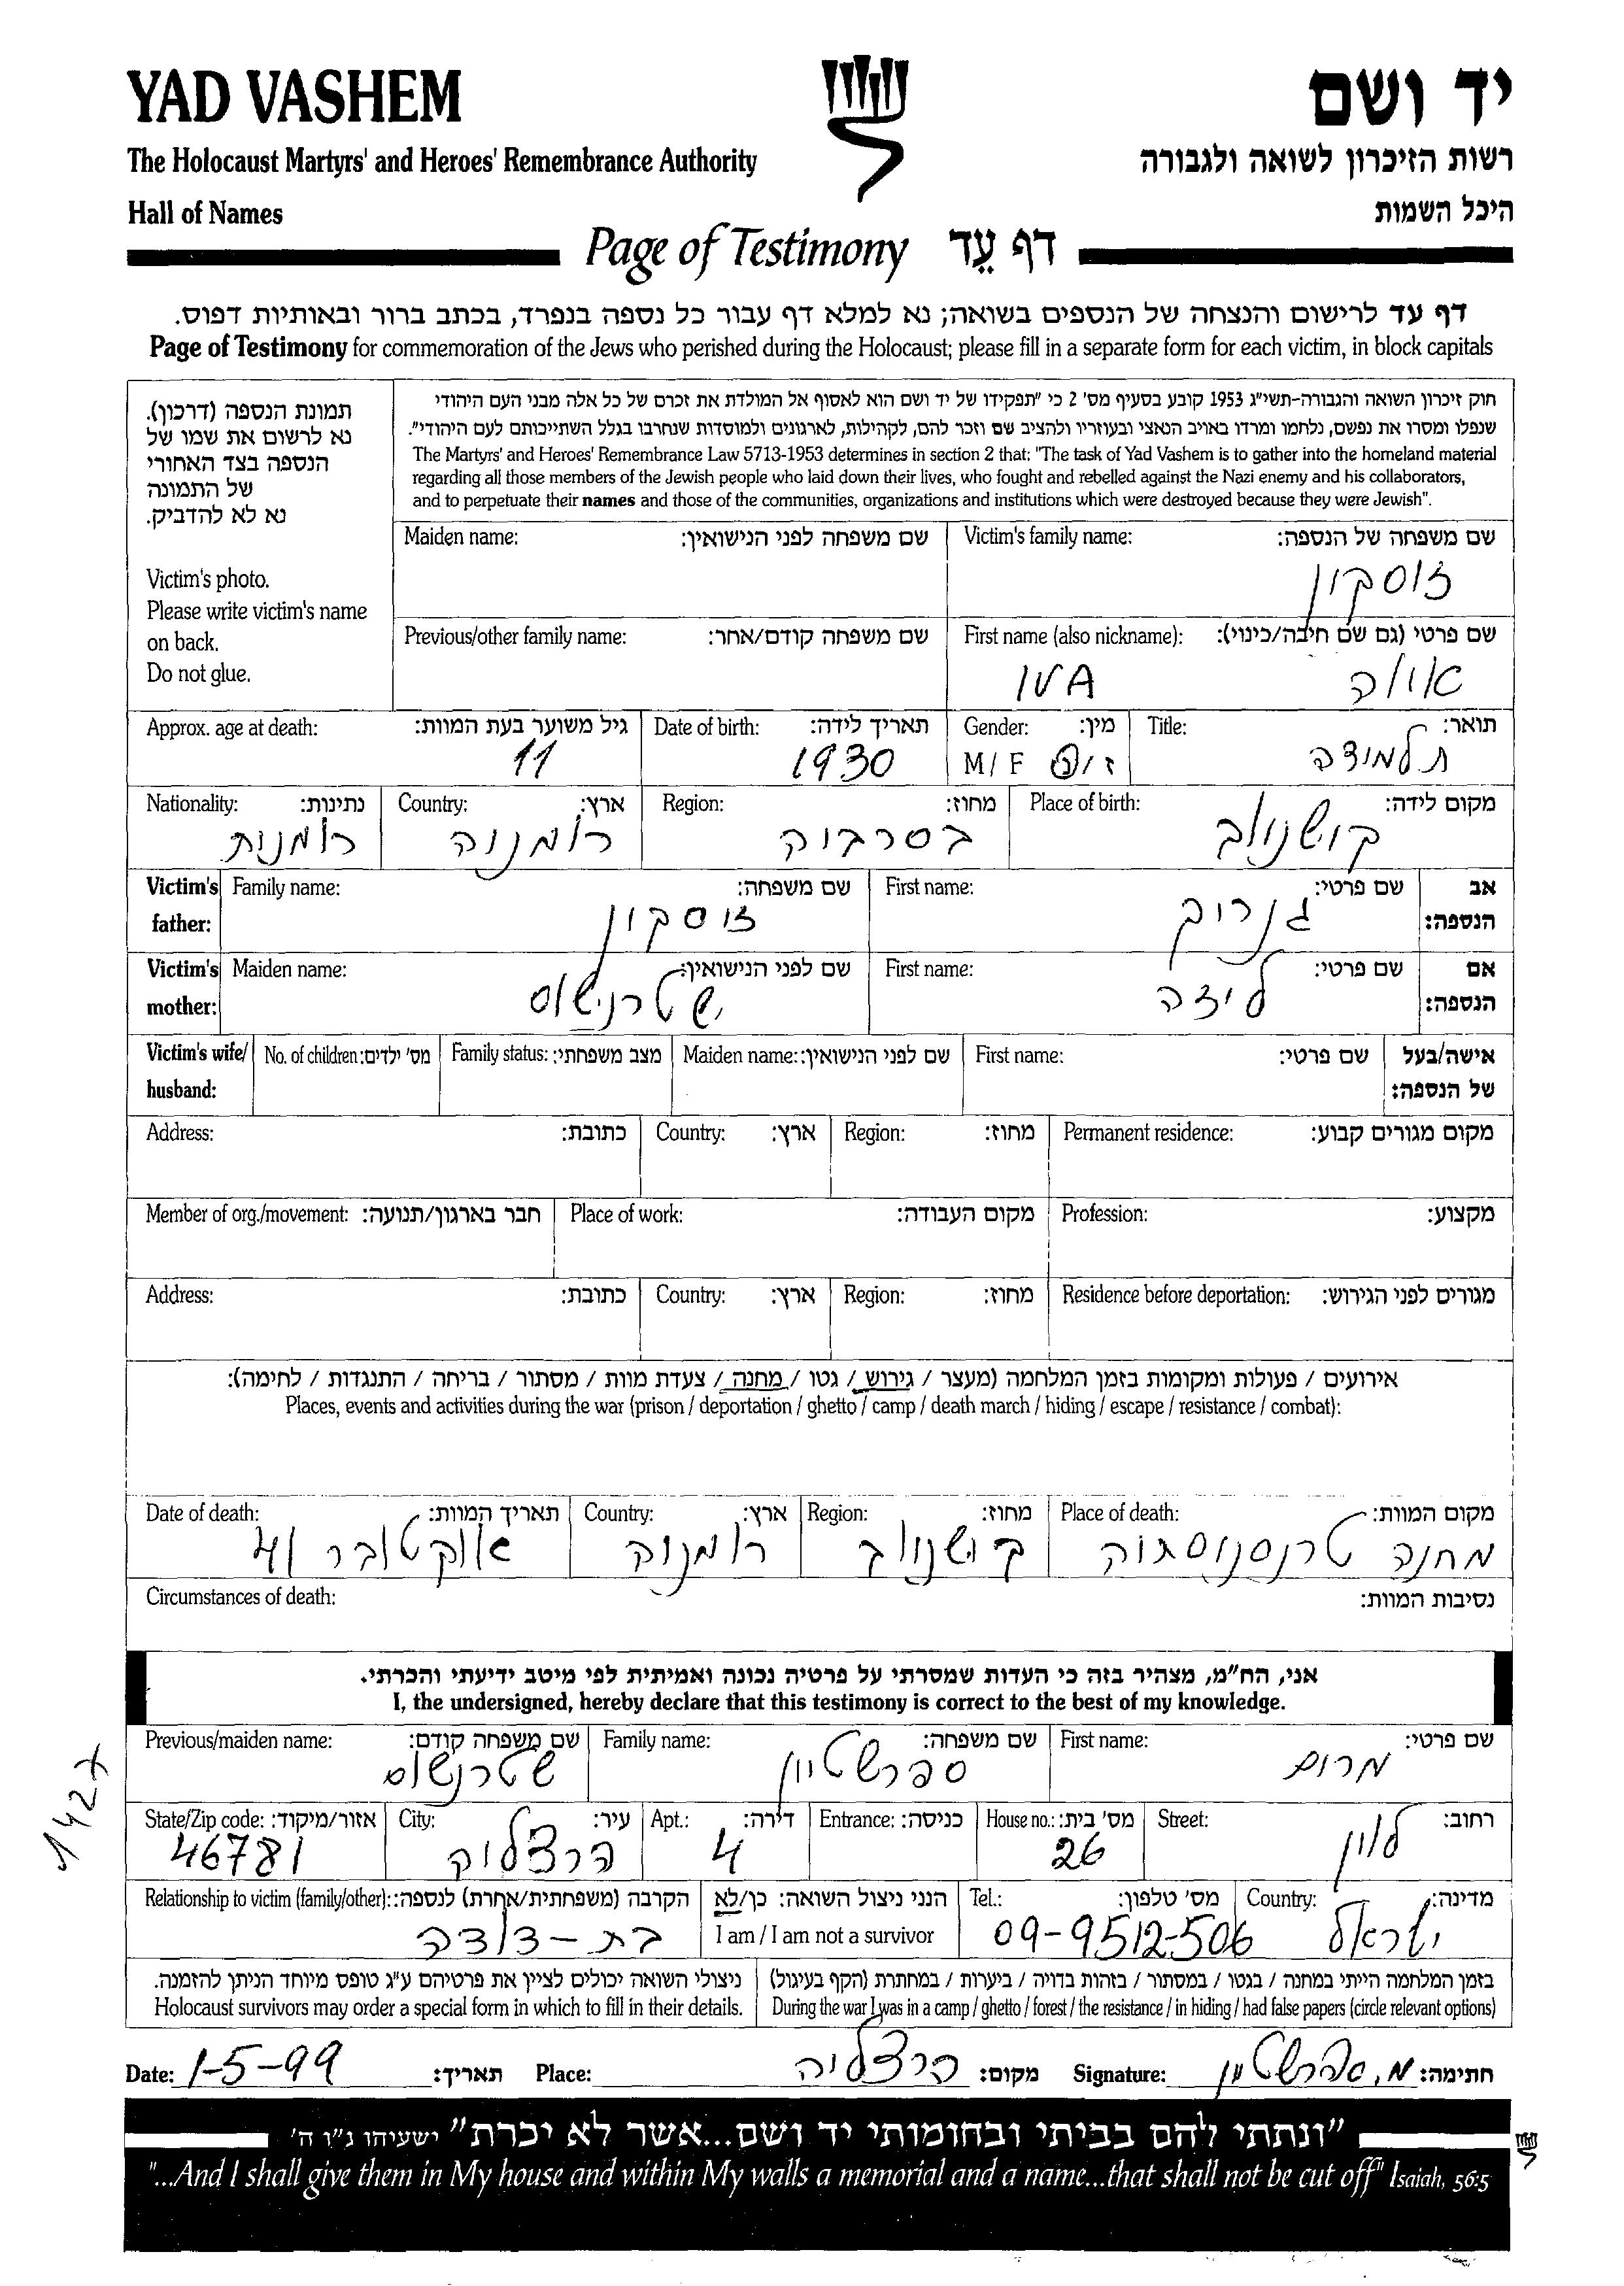 YAD VASHEM
יד ושם
The Holocaust Martyrs' and Heroes' Remembrance Authority
רשות הזיכרון לשואה ולגבורה
Hall of Names
היכל השמות
Page of Testimony דף עֵד
דף עד לרישום והנצחה של הנספים בשואה; נא למלא דף עבור כל נספה בנפרד, בכתב ברור ובאותיות דפוס.
Page of Testimony for commemoration of the Jews who perished during the Holocaust; please fill in a separate form for each victim, in block capitals
תמונת הנספה (דרכון).
נא לרשום את שמו של
הנספה בצד האחורי
של התמונה
נא לא להדביק.
Victim's photo.
Please write victim's name
on back.
Do not glue.
חוק זיכרון השואה והגבורה-תשי"ג 1953 קובע בסעיף מס' 2 כי "תפקידו של יד ושם הוא לאסוף אל המולדת את זכרם של כל אלה מבני העם היהודי
שנפלו ומסרו את נפשם, נלחמו ומרדו באויב הנאצי ובעוזריו ולהציב שם וזכר להם, לקהילות, לארגונים ולמוסדות שנחרבו בגלל השתייכותם לעם היהודי".
The Martyrs' and Heroes' Remembrance Law 5713-1953 determines in section 2 that: "The task of Yad Vashem is to gather into the homeland material
regarding all those members of the Jewish people who laid down their lives, who fought and rebelled against the Nazi enemy and his collaborators,
and to perpetuate their names and those of the communities, organizations and institutions which were destroyed because they were Jewish".
Maiden name: שם משפחה לפני הנישואין: Victim's family name: שם משפחה של הנספה:
זוסקון
Previous/other family name: שם משפחה קודם/אחר: First name (also nickname): שם פרטי (גם שם חיבה/כינוי):
IVA אווה
Approx. age at death: גיל משוער בעת המוות: Date of birth: תאריך לידה: Gender: מין: Title: תואר:
11 1930 M / F ז / נ תלמידה
Nationality: נתינות: Country: ארץ: Region: מחוז: Place of birth: מקום לידה:
רומנית רומניה בסרביה קישינוב
Victim's Family name: שם משפחה: First name: שם פרטי: אב
father: זוסקין גנריך הנספה:
Victim's Maiden name: שם לפני הנישואין: First name: שם פרטי: אם
mother: שטרנשוס ליזה הנספה:
Victim's wife/ No. of children: מס' ילדים: Family status: מצב משפחתי: Maiden name: שם לפני הנישואין: First name: שם פרטי: אישה/בעל
husband: של הנספה:
Address: כתובת: Country: ארץ: Region: מחוז: Permanent residence: מקום מגורים קבוע:
Member of org./movement: חבר בארגון/תנועה: Place of work: מקום העבודה: Profession: מקצוע:
Address: כתובת: Country: ארץ: Region: מחוז: Residence before deportation: מגורים לפני הגירוש:
אירועים / פעולות ומקומות בזמן המלחמה (מעצר / גירוש / גטו / מחנה / צעדת מוות / מסתור / בריחה / התנגדות / לחימה):
Places, events and activities during the war (prison / deportation / ghetto / camp / death march / hiding / escape / resistance / combat):
Date of death: תאריך המוות: Country: ארץ: Region: מחוז: Place of death: מקום המוות:
אוקטובר 41 רומניה קישינוב מחנה טרנסניסתריה
Circumstances of death: נסיבות המוות:
אני, הח"מ, מצהיר בזה כי העדות שמסרתי על פרטיה נכונה ואמיתית לפי מיטב ידיעתי והכרתי.
I, the undersigned, hereby declare that this testimony is correct to the best of my knowledge.
Previous/maiden name: שם משפחה קודם: Family name: שם משפחה: First name: שם פרטי:
שטרנשוס ספרשטיין מרים
142x
State/Zip code: אזור/מיקוד: City: עיר: Apt.: דירה: Entrance: כניסה: House no.: מס' בית: Street: רחוב:
46781 הרצליה 4 26 לוין
Relationship to victim (family/other): הקרבה (משפחתית/אחרת) לנספה: הנני ניצול השואה: כן/לא Tel.: מס' טלפון: Country: מדינה:
בת-דודה I am / I am not a survivor 09-9512-506 ישראל
ניצולי השואה יכולים לציין את פרטיהם ע"ג טופס מיוחד הניתן להזמנה. בזמן המלחמה הייתי במחנה / בגטו / במסתור / בזהות בדויה / ביערות / במחתרת (הקף בעיגול)
Holocaust survivors may order a special form in which to fill in their details. During the war I was in a camp / ghetto / forest / the resistance / in hiding / had false papers (circle relevant options)
Date: 1-5-99 תאריך: Place: הרצליה מקום: Signature: מ. ספרשטיין חתימה:
"ונתתי להם בביתי ובחומותי יד ושם...אשר לא יכרת" ישעיהו נ"ו ה'
"...And I shall give them in My house and within My walls a memorial and a name...that shall not be cut off" Isaiah, 56:5